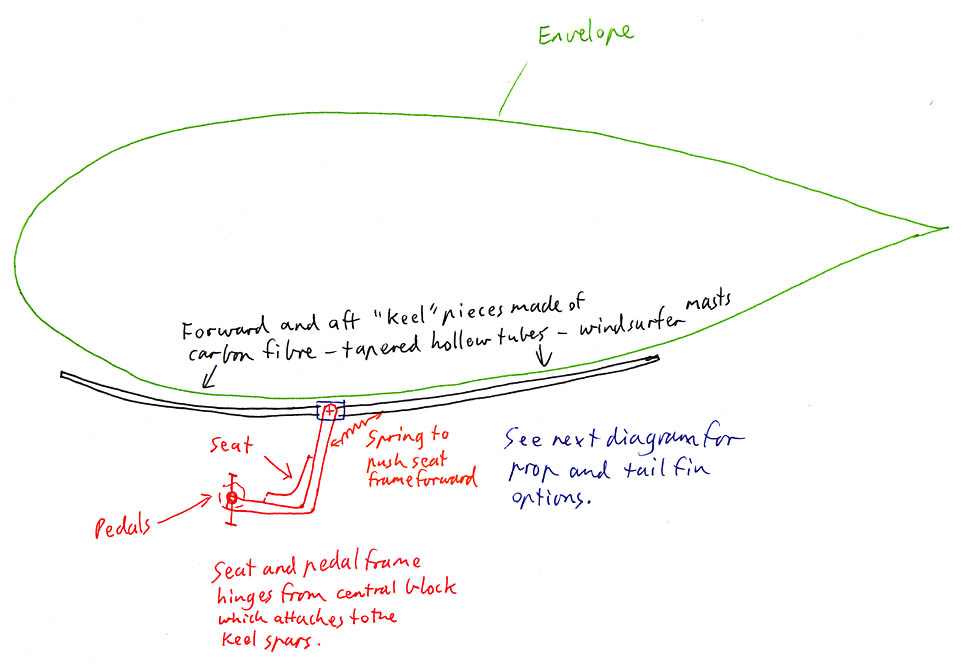 Envelope
Forward and aft "keel" pieces made of
carbon fibre - tapered hollow tubes - windsurfer masts
Seat
Spring to
push seat
frame forward
See next diagram for
prop and tail fin
options.
Pedals
Seat and pedal frame
hinges from central block
which attaches to the
keel spars.